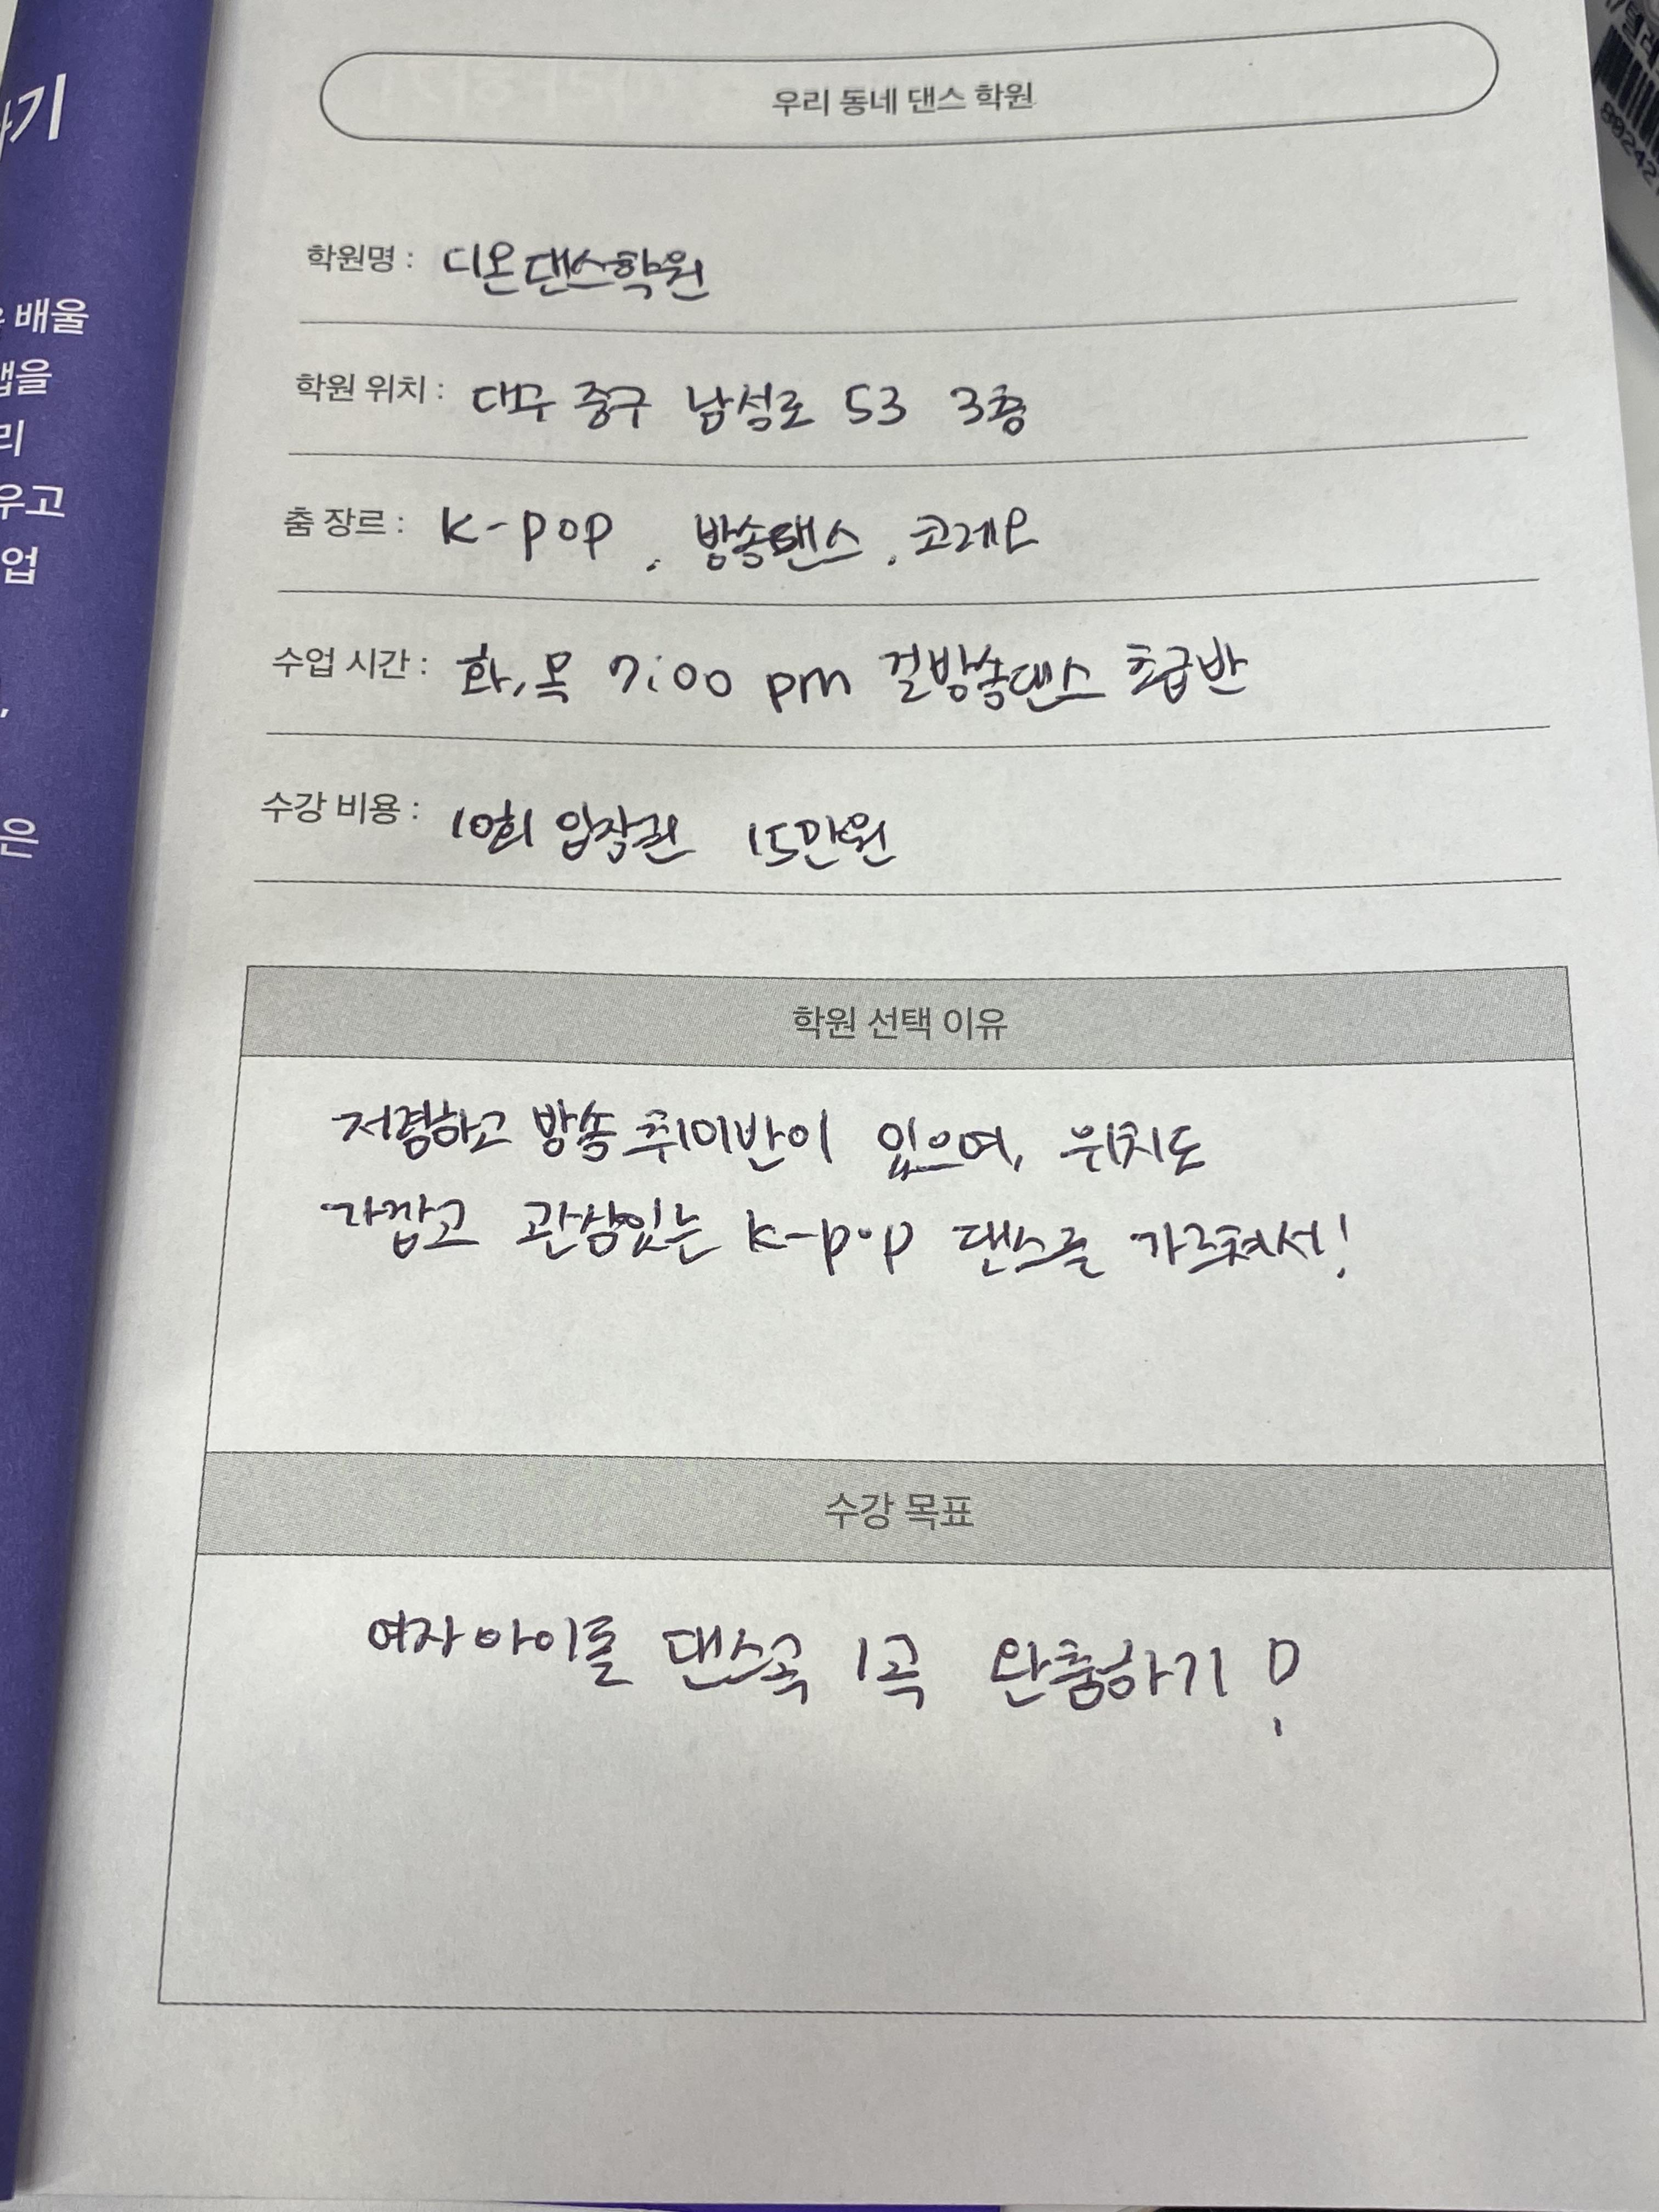 우리 동네 댄스 학원
학원명 : 디온댄스학원
학원 위치 : 대구 중구 남성로 53 3층
춤 장르 : K-pop, 방송댄스, 코레오
수업 시간 : 화,목 7:00 pm 걸방송댄스 초급반
수강 비용 : 10회 입장권 15만원
학원 선택 이유
저렴하고 방송 취미반이 있으며, 위치도
가깝고 관심있는 K-pop 댄스를 가르쳐서!
수강 목표
여자아이돌 댄스곡 1곡 완춤하기!
배울
을
리
우고
업
은